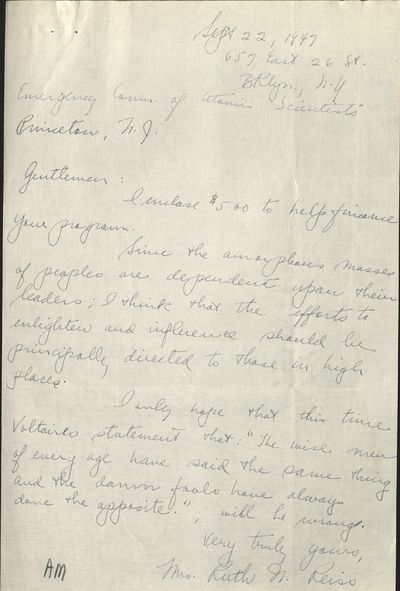 Sept 22, 1947
657 East 26 St.
BKlyn., N.Y
Emergency Comm. of Atomic Scientists
Princeton, N.J.
Gentlemen:
I enclose $5.00 to help finance
your program.
Since the amorphous masses
of peoples are dependent upon their
leaders; I think that the efforts to
enlighten and influence should be
principally directed to those in high
places.
I only hope that this time
Voltaire's statement that: "The wise men
of every age have said the same thing
and the damn fools have always
done the opposite.", will be wrong.
Very truly yours,
Mrs. Ruth N. Reiss
AM